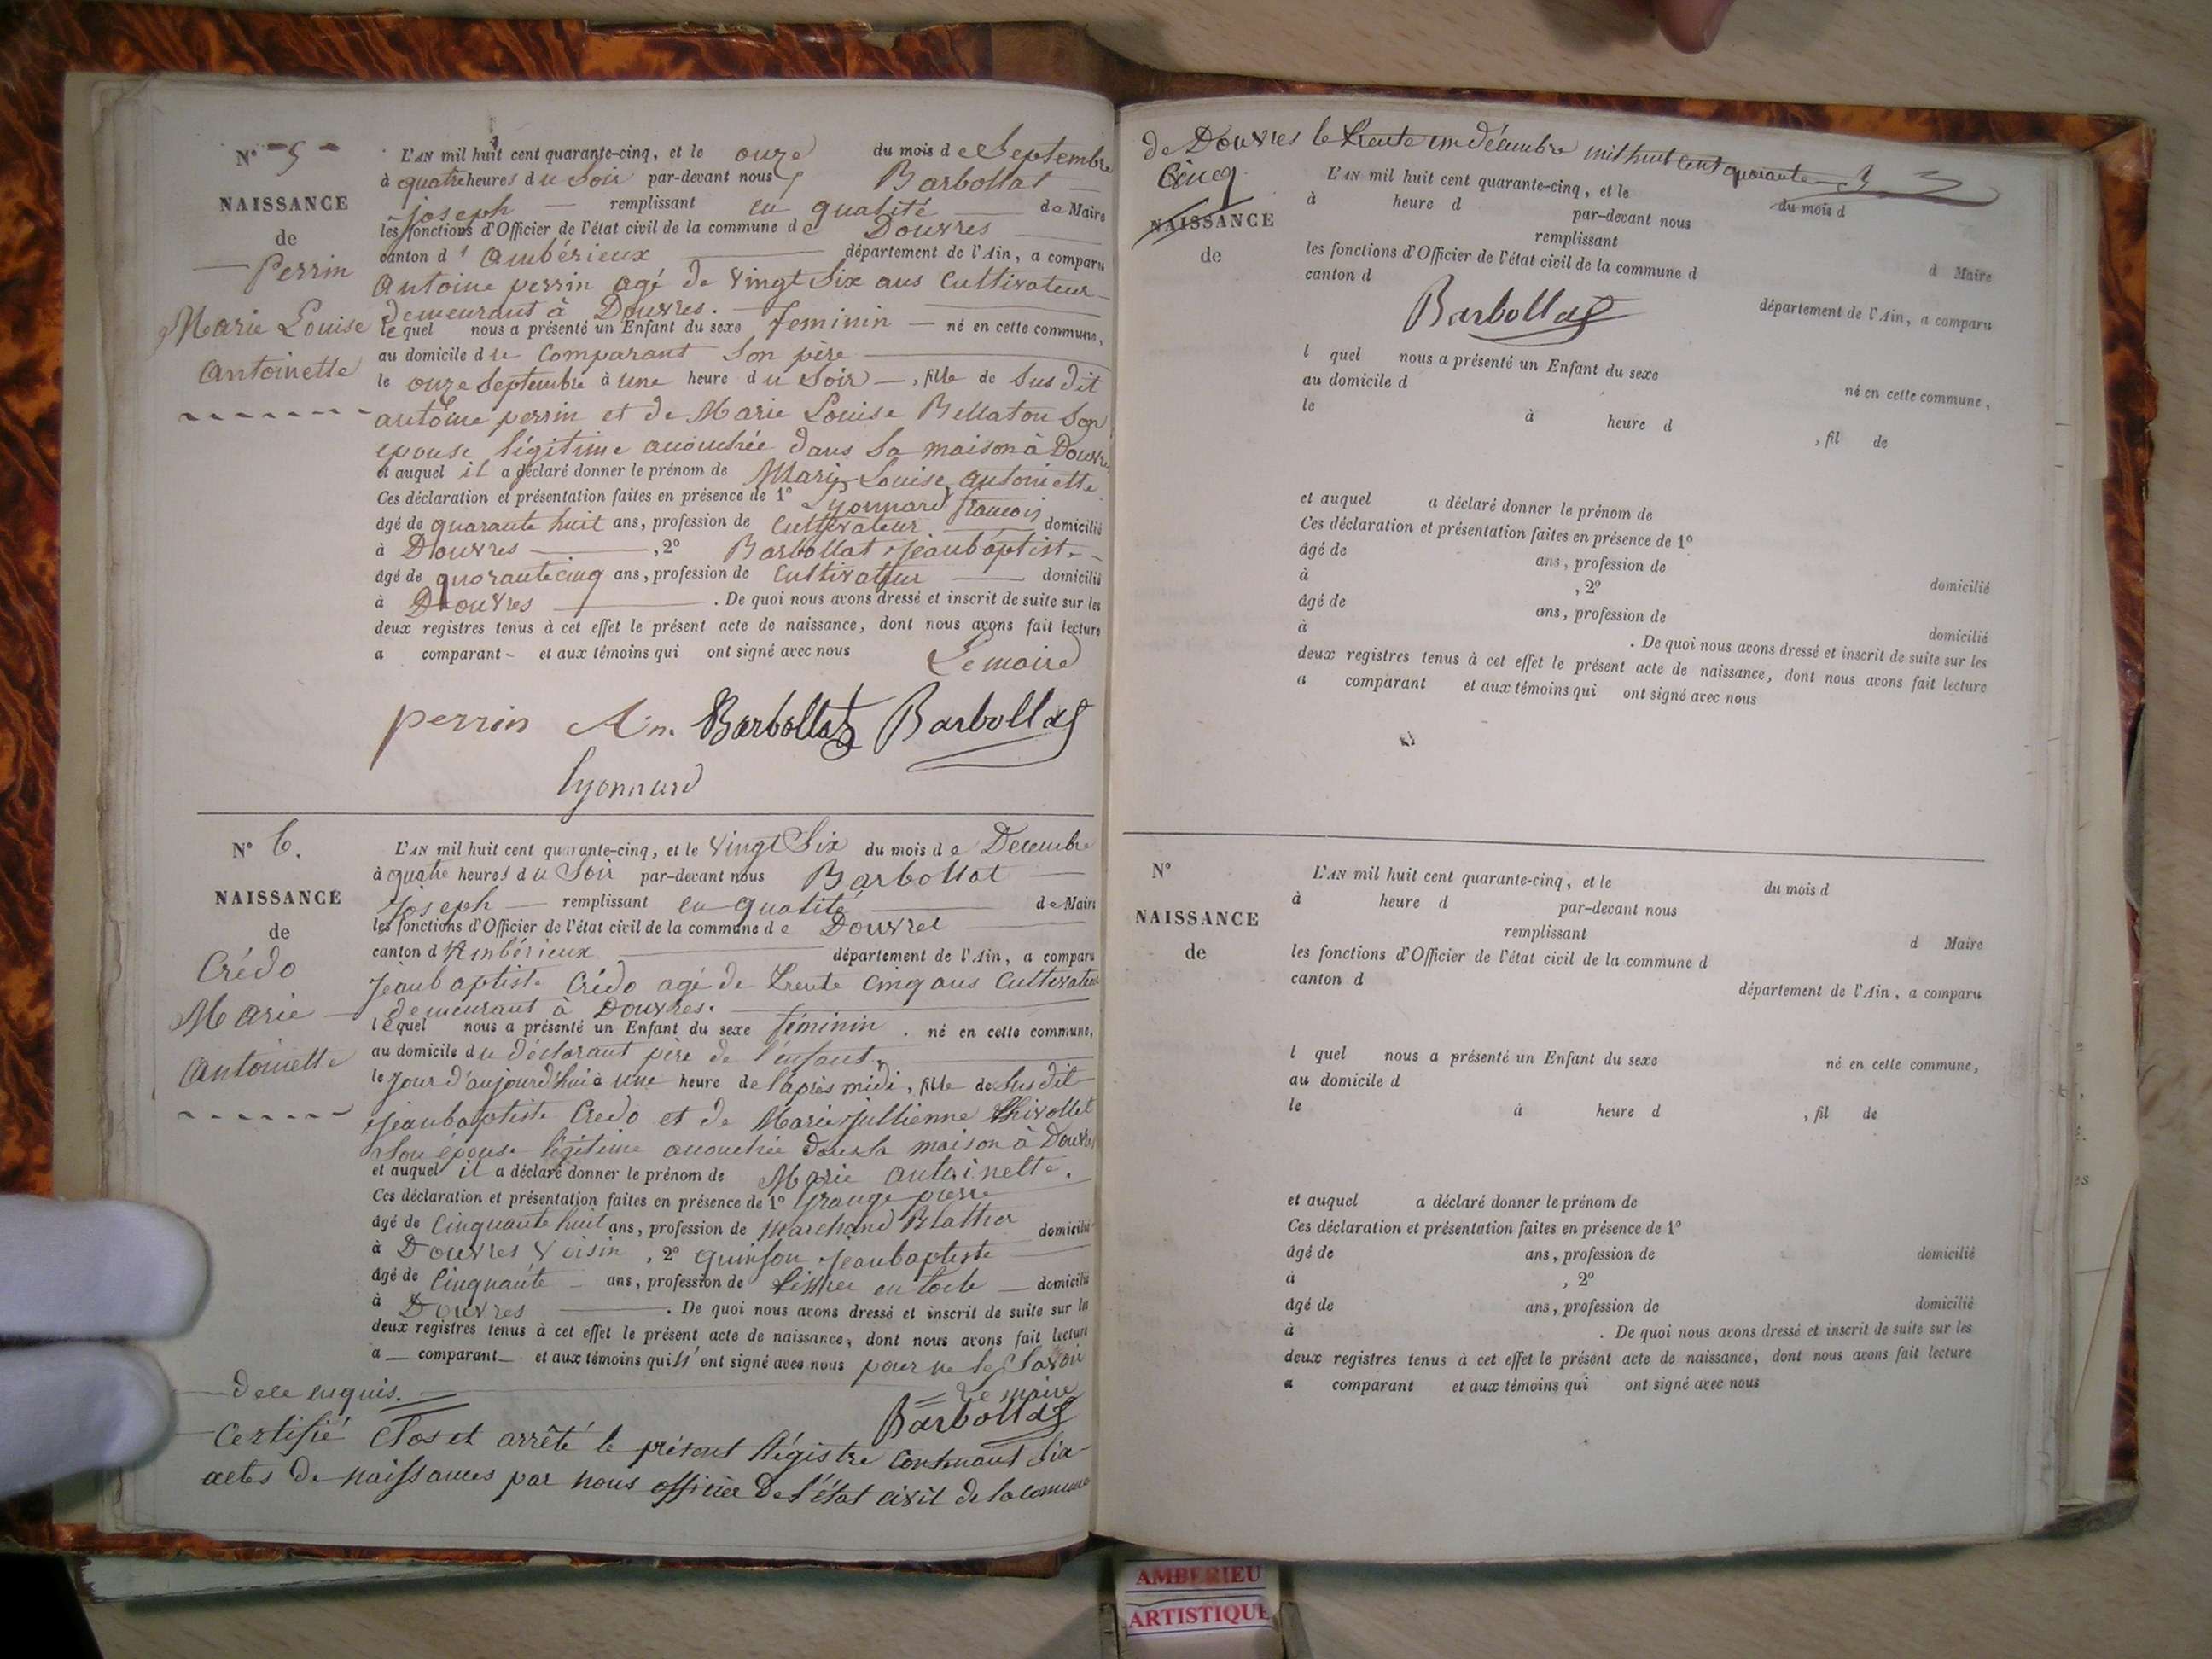 N° - 5 -
NAISSANCE
de
Perrin
Marie Louise
Antoinette
L'AN mil huit cent quarante-cinq, et le onze du mois de Septembre
à quatre heures du Soir par-devant nous Barbollat
joseph remplissant en qualité de Maire
les fonctions d'Officier de l'état civil de la commune de Douvres
canton d'Ambérieux département de l'Ain, a comparu
Antoine perrin agé de vingt Six ans Cultivateur
demeurant à Douvres.
lequel nous a présenté un Enfant du sexe feminin né en cette commune,
au domicile du Comparant Son père
le onze Septembre à une heure du Soir, fille de Susdit
antoine perrin et de Marie Louise Bellaton Son
epouse légitime accouchée dans Sa maison à Douvres
et auquel il a déclaré donner le prénom de Marie Louise antoinette
Ces déclaration et présentation faites en présence de 1° Lyonnard francois
âgé de quarante huit ans, profession de Cultivateur domicilié
à Douvres, 2° Barbollat jeanbaptiste
âgé de quarante cinq ans, profession de Cultivateur domicilié
à Douvres. De quoi nous avons dressé et inscrit de suite sur les
deux registres tenus à cet effet le présent acte de naissance, dont nous avons fait lecture
a comparant et aux témoins qui ont signé avec nous
Le maire
perrin An. Barbollat Barbollat
lyonnard
N° 6.
NAISSANCE
de
Crédo
Marie
Antoinette
L'AN mil huit cent quarante-cinq, et le vingt Six du mois de Decembre
à quatre heures du Soir par-devant nous Barbollat
Joseph remplissant en qualité de Maire
les fonctions d'Officier de l'état civil de la commune de Douvres
canton d'Ambérieux département de l'Ain, a comparu
jeanbaptiste Crédo agé de trente Cinq ans Cultivateur
demeurant à Douvres.
lequel nous a présenté un Enfant du sexe féminin. né en cette commune,
au domicile du déclarant père de l'enfant.
le Jour d'aujourd'hui à une heure de l'après midi, fille de Susdit
jeanbaptiste Credo et de Marie jullienne thivollet
Son épouse légitime accouchée dans sa maison à Douvres
et auquel il a déclaré donner le prénom de Marie antoinette.
Ces déclaration et présentation faites en présence de 1° Grange pierre
âgé de Cinquante huit ans, profession de Marchand Blattier domicilié
à Douvres Voisin, 2° quinson jeanbaptiste
âgé de Cinquante ans, profession de tissier en toile domicilié
à Douvres. De quoi nous avons dressé et inscrit de suite sur les
deux registres tenus à cet effet le présent acte de naissance, dont nous avons fait lecture
a comparant et aux témoins qui n'ont signé avec nous pour ne le Savoir
de ce enquis. Le maire
Barbollat
Certifié Clos et arrêté le présent Régistre Contenant Six
actes de naissances par nous officier de l'état civil de la commune
de Douvres le trente un décembre mil huit cent quarante
Cinq
NAISSANCE
de
L'AN mil huit cent quarante-cinq, et le du mois d
à heure d par-devant nous
remplissant d Maire
les fonctions d'Officier de l'état civil de la commune d
canton d département de l'Ain, a comparu
Barbollat
l quel nous a présenté un Enfant du sexe né en cette commune,
au domicile d
le à heure d , fil de
et auquel a déclaré donner le prénom de
Ces déclaration et présentation faites en présence de 1°
âgé de ans, profession de domicilié
à , 2°
âgé de ans, profession de domicilié
à . De quoi nous avons dressé et inscrit de suite sur les
deux registres tenus à cet effet le présent acte de naissance, dont nous avons fait lecture
a comparant et aux témoins qui ont signé avec nous
N°
NAISSANCE
de
L'AN mil huit cent quarante-cinq, et le du mois d
à heure d par-devant nous
remplissant d Maire
les fonctions d'Officier de l'état civil de la commune d
canton d département de l'Ain, a comparu
l quel nous a présenté un Enfant du sexe né en cette commune,
au domicile d
le à heure d , fil de
et auquel a déclaré donner le prénom de
Ces déclaration et présentation faites en présence de 1°
âgé de ans, profession de domicilié
à , 2°
âgé de ans, profession de domicilié
à . De quoi nous avons dressé et inscrit de suite sur les
deux registres tenus à cet effet le présent acte de naissance, dont nous avons fait lecture
a comparant et aux témoins qui ont signé avec nous
AMBERIEU
ARTISTIQUE